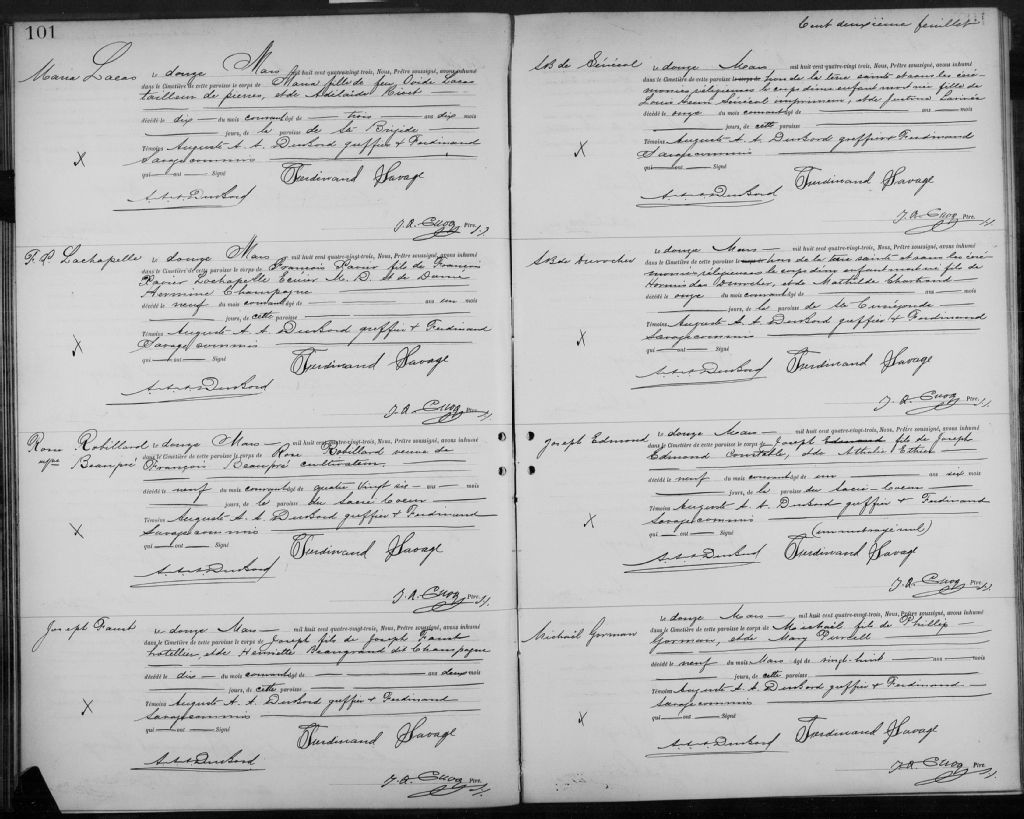 101
Maria Lacas
Le douze Mars mil huit cent quatre-vingt-trois, Nous, Prêtre soussigné, avons inhumé
dans le Cimetière de cette paroisse le corps de Maria fille de feu Ovide Lacas
tailleur de pierres, et de Adélaïde
décédé le dix du mois courant âgé de trois ans dix mois
jours, de la paroisse de Ste Brigide
Témoins Auguste A. A. DuBord greffier & Ferdinand
Savage commis
qui ont Signé
Ferdinand Savage
A. A. A. DuBord
J. A. Cuoq Ptre. S.
F. X. Lachapelle
Le douze Mars mil huit cent quatre-vingt-trois, Nous, Prêtre soussigné, avons inhumé
dans le Cimetière de cette paroisse le corps de François Xavier fils de François
Xavier Lachapelle Ecuier M. D. et de Dame
Hermine Champagne
décédé le neuf du mois courant âgé de ans un mois
jours, de cette paroisse
Témoins Auguste A. A. DuBord greffier & Ferdinand
Savage commis
qui ont Signé
Ferdinand Savage
A. A. A. DuBord
J. A. Cuoq Ptre. S.
Rose Robillard
Beaupré
Le douze Mars mil huit cent quatre-vingt-trois, Nous, Prêtre soussigné, avons inhumé
dans le Cimetière de cette paroisse le corps de Rose Robillard veuve de
François Beaupré cultivateur
décédé le neuf du mois courant âgé de quatre vingt six ans mois
jours, de la paroisse du Sacré Coeur
Témoins Auguste A. A. DuBord greffier & Ferdinand
Savage commis
qui ont Signé
Ferdinand Savage
A. A. A. DuBord
J. A. Cuoq Ptre. S.
Joseph Faust
Le douze Mars mil huit cent quatre-vingt-trois, Nous, Prêtre soussigné, avons inhumé
dans le Cimetière de cette paroisse le corps de Joseph fils de Joseph Faust
hotellier, et de Henriette Beaugrand dit Champagne
décédé le dix du mois courant âgé de ans deux mois
jours, de cette paroisse
Témoins Auguste A. A. DuBord greffier & Ferdinand
Savage commis
qui ont Signé
Ferdinand Savage
A. A. A. DuBord
J. A. Cuoq Ptre. S.
Cent deuxième feuillet
de Sénécal
Le douze Mars mil huit cent quatre-vingt-trois, Nous, Prêtre soussigné, avons inhumé
dans le Cimetière de cette paroisse le corps de hors de la terre sainte et sans les céré-
monies religieuses le corps d'un enfant mort né fille de
Louis Sénécal imprimeur, et de Justine
décédé le onze du mois courant âgé de ans mois
jours, de cette paroisse
Témoins Auguste A. A. DuBord greffier & Ferdinand
Savage commis
qui ont Signé
Ferdinand Savage
A. A. A. DuBord
J. A. Cuoq Ptre. S.
de Durocher
Le douze Mars mil huit cent quatre-vingt-trois, Nous, Prêtre soussigné, avons inhumé
dans le Cimetière de cette paroisse le corps de hors de la terre sainte et sans les céré-
monies religieuses le corps d'un enfant mort né fils de
Hormisdas Durocher, et de Mathilde Chartrand
décédé le onze du mois courant âgé de ans mois
jours, de la paroisse de Ste Cunégonde
Témoins Auguste A. A. DuBord greffier & Ferdinand
Savage commis
qui ont Signé
Ferdinand Savage
A. A. A. DuBord
J. A. Cuoq Ptre. S.
Joseph Edmond
Le douze Mars mil huit cent quatre-vingt-trois, Nous, Prêtre soussigné, avons inhumé
dans le Cimetière de cette paroisse le corps de Joseph Edmond fils de Joseph
Edmond Constable, et de Athalie Ethier
décédé le neuf du mois courant âgé de un ans six mois
jours, de la paroisse du Sacré-Coeur
Témoins Auguste A. A. DuBord greffier & Ferdinand
Savage commis
qui ont Signé
(un mot rayé nul)
Ferdinand Savage
A. A. A. DuBord
J. A. Cuoq Ptre. S.
Michaël Gorman
Le douze Mars mil huit cent quatre-vingt-trois, Nous, Prêtre soussigné, avons inhumé
dans le Cimetière de cette paroisse le corps de Michaël fils de Phillip
Gorman, et de Mary Pursell
décédé le neuf du mois Mars âgé de vingt-huit ans mois
jours, de cette paroisse
Témoins Auguste A. A. DuBord greffier & Ferdinand
Savage commis
qui ont Signé
Ferdinand Savage
A. A. A. DuBord
J. A. Cuoq Ptre. S.